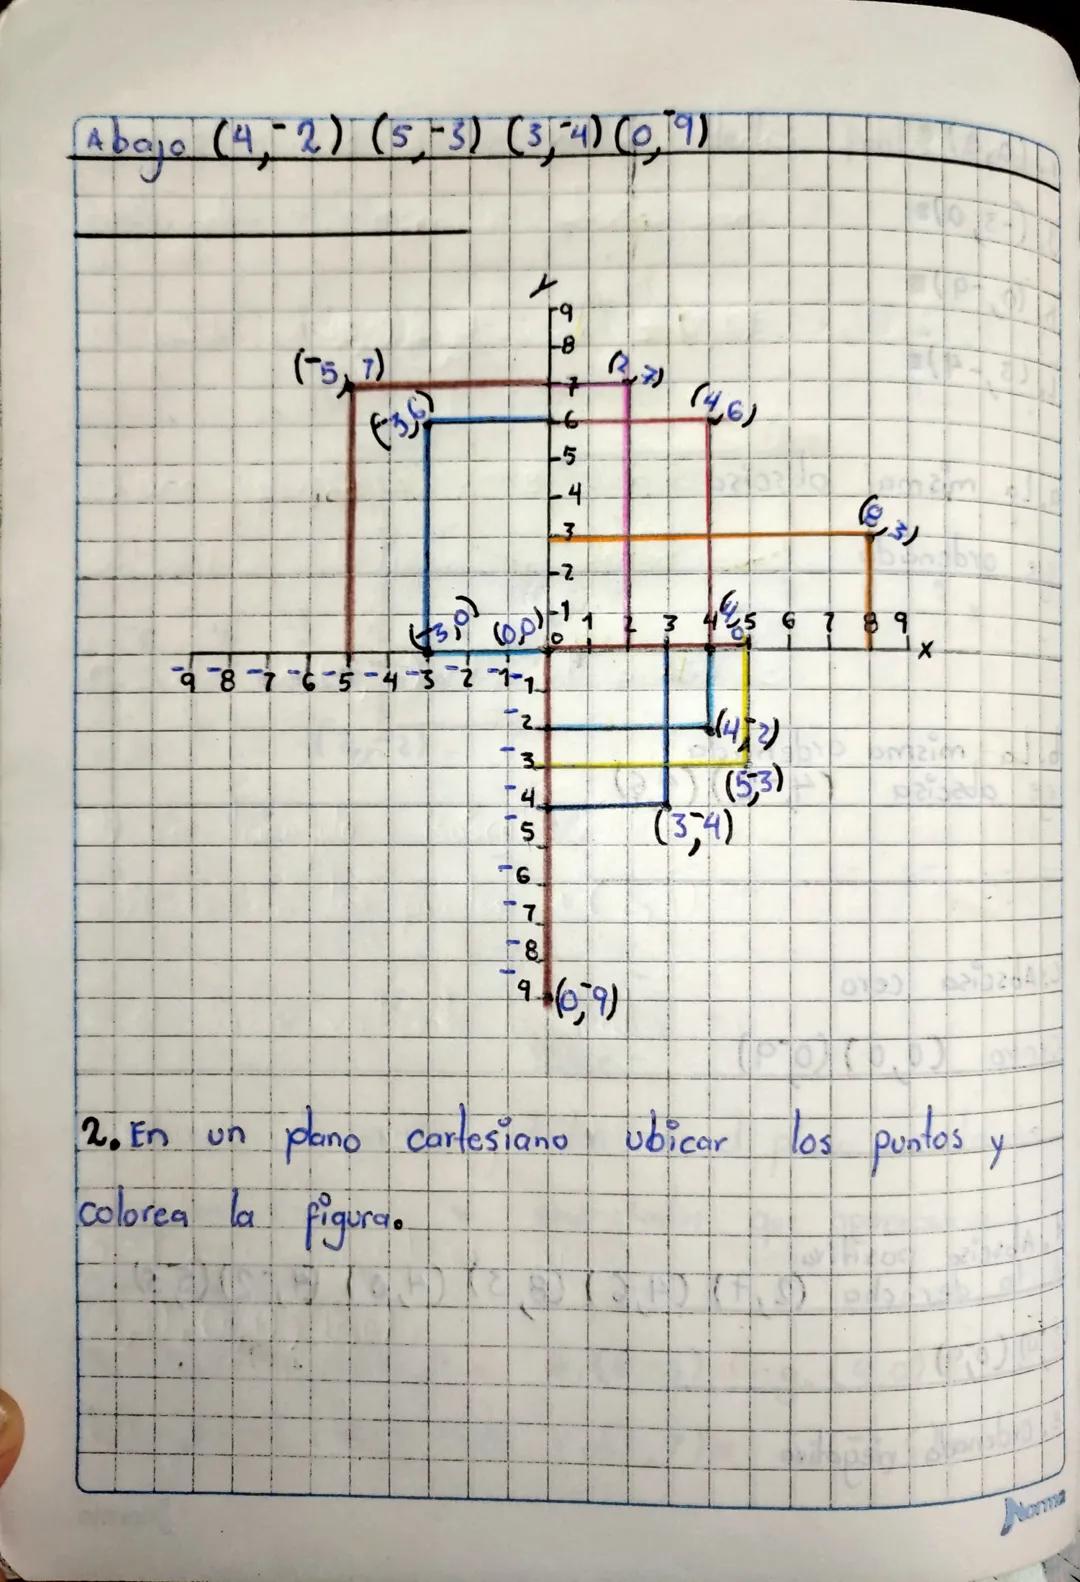 Abajo (4,-2) (5,-3) (3,-4) (0,-9)
y
9
8
(-5,7) 7 (2,7)
(-3,6) 6 (4,6)
5
4
3 (8,3)
2
1
(-3,0) (0,0) 0 1 2 3 4 5 6 7 8 9 x
(4,0)
-9 -8 -7 -6 -5 -4 -3 -2 -1
-1
-2 (4,-2)
-3 (5,-3)
-4 (3,-4)
-5
-6
-7
-8
-9 (0,-9)
2. En un plano cartesiano ubicar los puntos y
colorea la figura.
Norma